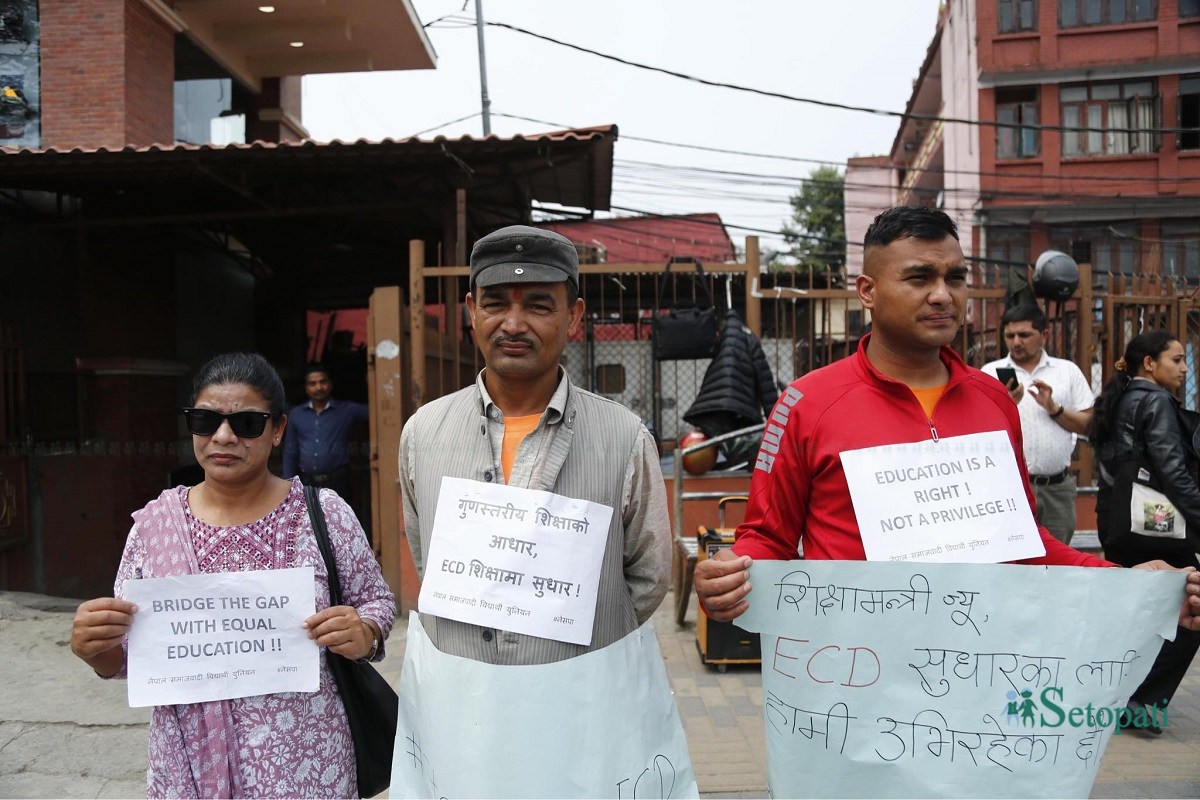 BRIDGE THE GAP
WITH EQUAL
EDUCATION !!
नेपाल समाजवादी विद्यार्थी युनियन #नेसपा
गुणस्तरीय शिक्षाको
आधार,
ECD शिक्षामा सुधार !
नेपाल समाजवादी विद्यार्थी युनियन #नेसपा
ECD
PUMA
EDUCATION IS A
RIGHT !
NOT A PRIVILEGE !!
नेपाल समाजवादी विद्यार्थी युनियन #नेसपा
शिक्षामन्त्री ज्यू,
ECD सुधारका
हामी उभिरहेका
Setopati